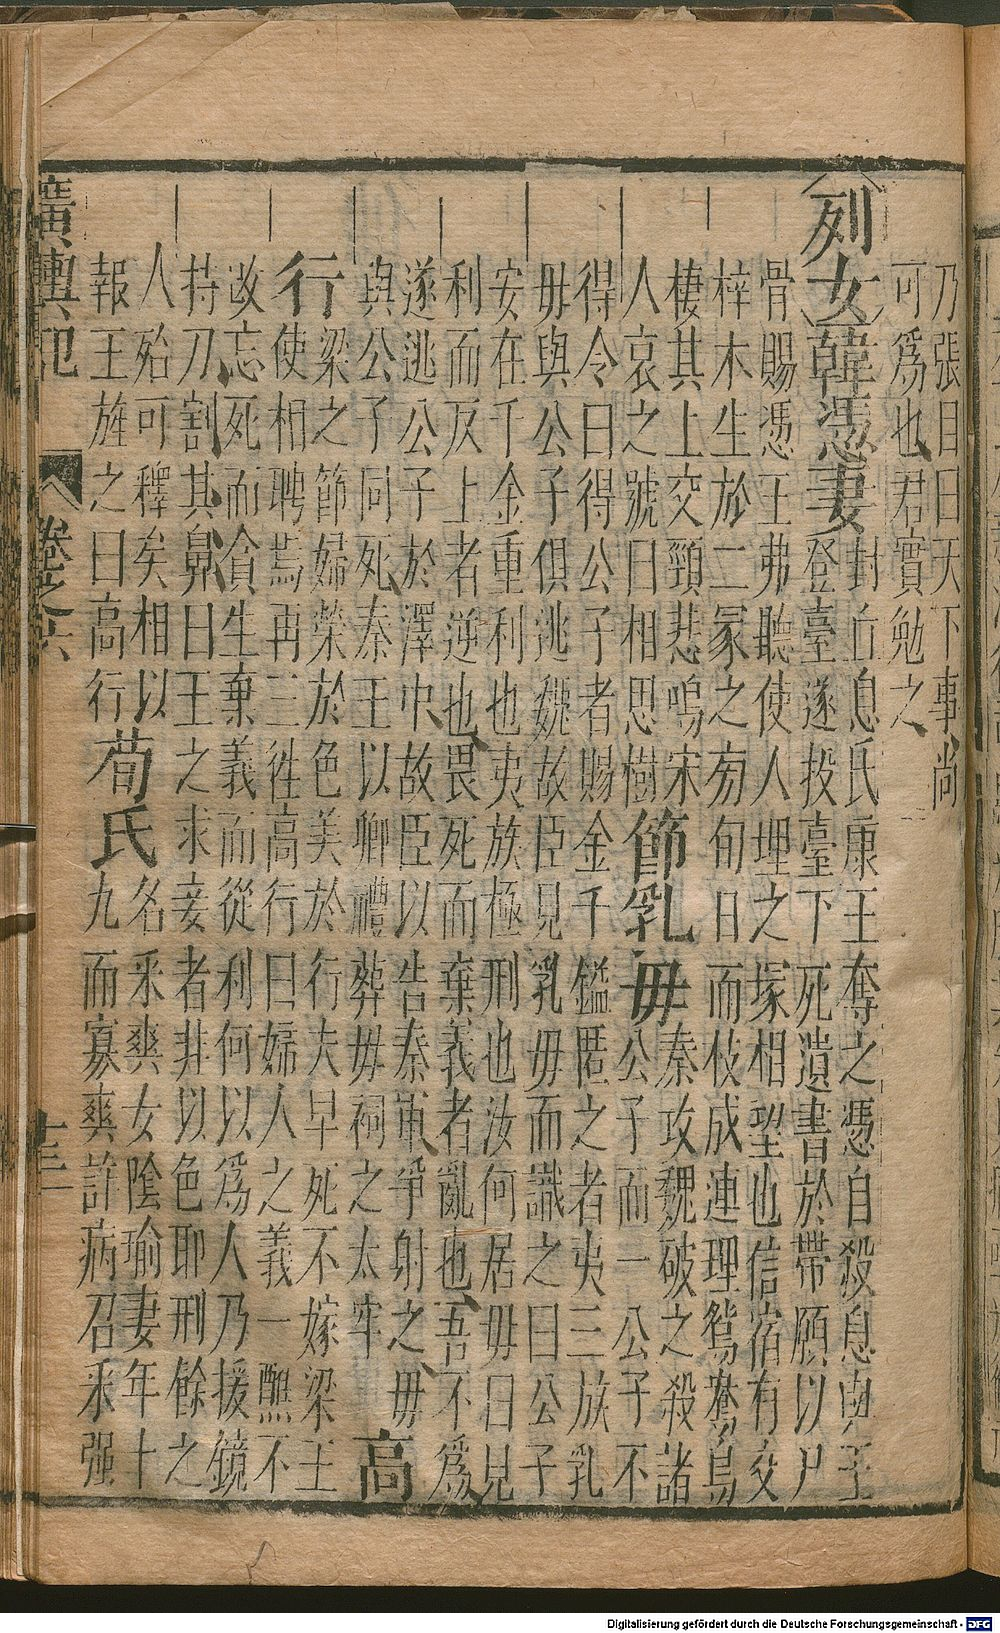 乃張目曰天下事尚
可爲也君實勉之
列女韓憑妻
封丘息氏康王奪之憑自殺息與王
登臺遂投臺下死遺書於帶願以尸
骨賜憑王弗聽使人埋之塚相望也信宿有交
梓木生於二冡之旁旬日而枝成連理鴛鴦鳥
棲其上交頸悲鳴宋
人哀之號曰相思樹
節乳毋
秦攻魏破之殺諸
公子而一公子不
得令曰得公子者賜金千鎰匿之者夷三族乳
毋與公子俱逃魏故臣見乳毋而識之曰公子
安在千金重利也夷族極刑也汝何居毋曰見
利而反上者逆也畏死而棄義者亂也吾不爲
遂逃公子於澤中故臣以告秦軍爭射之毋
與公子同死秦王以卿禮葬毋祠之太牢
高
行
梁之節婦榮於色美於行夫早死不嫁梁王
使相聘焉再三往高行曰婦人之義一醮不
改忘死而貪生棄義而從利何以爲人乃援鏡
持刀割其鼻曰王之求妾者非以色耶刑餘之
人殆可釋矣相以
報王旌之曰高行
荀氏
名采爽女陰瑜妻年十
九而寡爽許病召采强
廣輿記 卷之六 十三
Digitalisierung gefördert durch die Deutsche Forschungsgemeinschaft - DFG